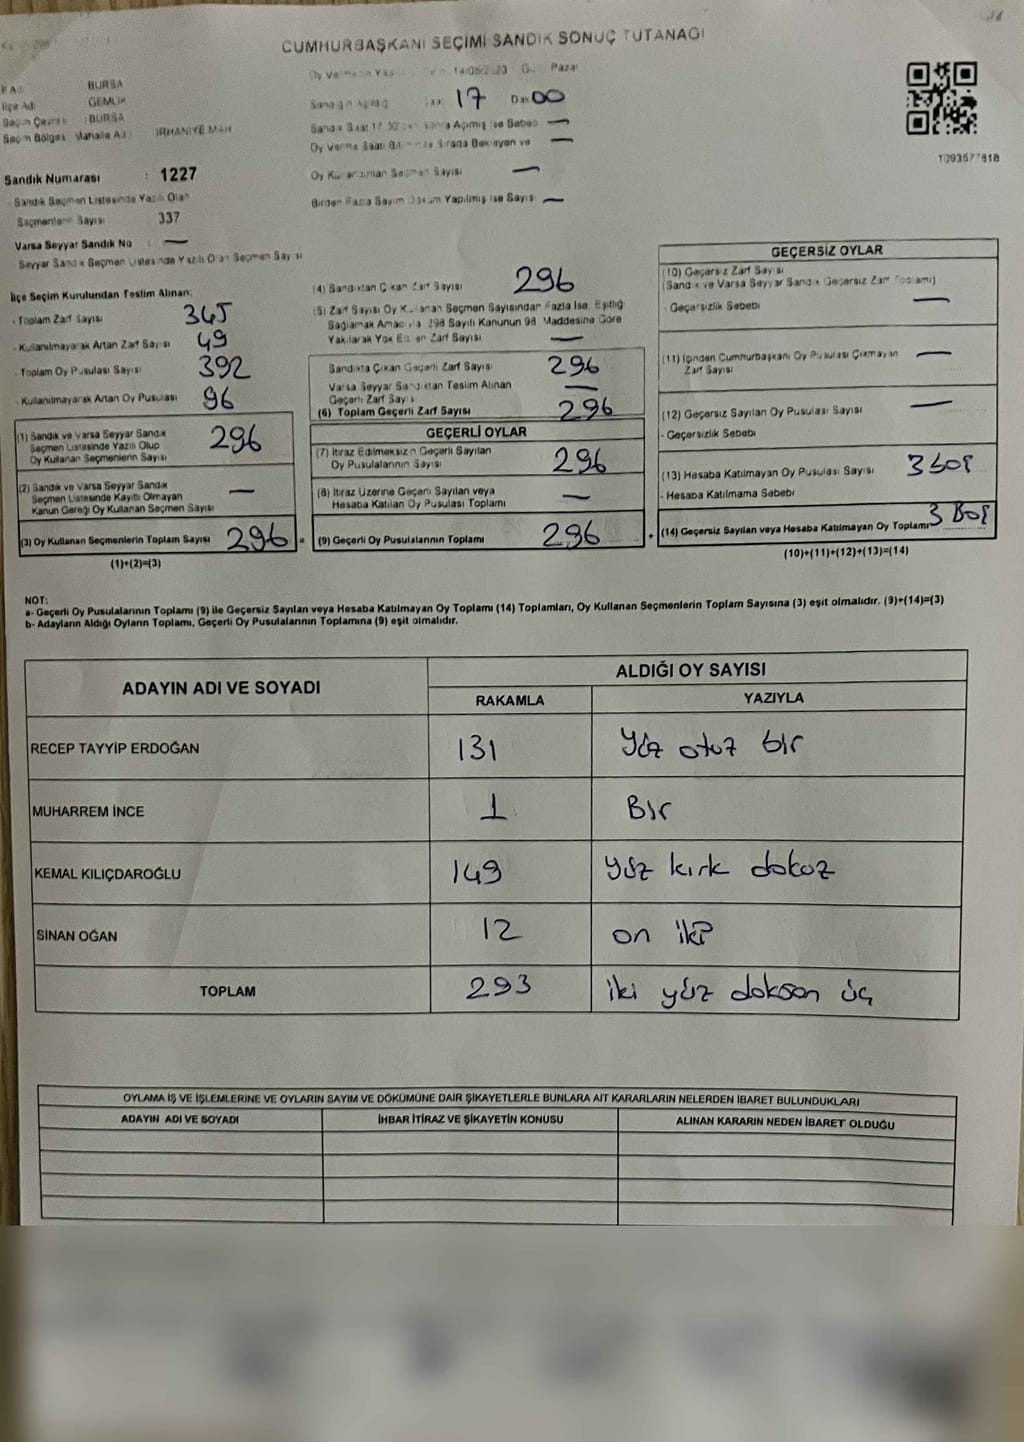 CUMHURBAŞKANI SEÇİMİ SANDIK SONUÇ TUTANAĞI
BURSA
İlçe Adı GEMLİK
Seçim Çevresi : BURSA
Seçim Bölgesi Mahalle Adı : ORHANİYE MAH
Sandık Numarası : 1227
- Sandık Seçmen Listesinde Yazılı Olan
Seçmenlerin Sayısı 337
Varsa Seyyar Sandık No : —
Seyyar Sandık Seçmen Listesinde Yazılı Olan Seçmen Sayısı
14/05/2023 Pazar
Sandığın Açıldığı Saat 17 Dak 00
Sandık Saat 17:00'den Sonra Açılmış İse Sebebi —
Oy Verme Saati Bitiminde Sırada Bekleyen ve —
Oy Kullandırılan Seçmen Sayısı —
Birden Fazla Sayım Döküm Yapılmış İse Sayısı —
1093577818
İlçe Seçim Kurulundan Teslim Alınan:
- Toplam Zarf Sayısı 345
- Kullanılmayarak Artan Zarf Sayısı 49
- Toplam Oy Pusulası Sayısı 392
- Kullanılmayarak Artan Oy Pusulası 96
(1) Sandık ve Varsa Seyyar Sandık
Seçmen Listesinde Yazılı Olup
Oy Kullanan Seçmenlerin Sayısı 296
(2) Sandık ve Varsa Seyyar Sandık
Seçmen Listesinde Kayıtlı Olmayan
Kanun Gereği Oy Kullanan Seçmen Sayısı —
(3) Oy Kullanan Seçmenlerin Toplam Sayısı 296 =
(1)+(2)=(3)
(4) Sandıktan Çıkan Zarf Sayısı 296
(5) Zarf Sayısı Oy Kullanan Seçmen Sayısından Fazla İse, Eşitliği
Sağlamak Amacıyla, 298 Sayılı Kanunun 98. Maddesine Göre
Yakılarak Yok Edilen Zarf Sayısı —
Sandıkta Çıkan Geçerli Zarf Sayısı 296
Varsa Seyyar Sandıktan Teslim Alınan
Geçerli Zarf Sayısı —
(6) Toplam Geçerli Zarf Sayısı 296
GEÇERLİ OYLAR
(7) İtiraz Edilmeksizin Geçerli Sayılan
Oy Pusulalarının Sayısı 296
(8) İtiraz Üzerine Geçerli Sayılan veya
Hesaba Katılan Oy Pusulası Toplamı —
(9) Geçerli Oy Pusulalarının Toplamı 296 +
GEÇERSİZ OYLAR
(10) Geçersiz Zarf Sayısı
(Sandık ve Varsa Seyyar Sandık Geçersiz Zarf Toplamı)
- Geçersizlik Sebebi —
(11) İçinden Cumhurbaşkanı Oy Pusulası Çıkmayan
Zarf Sayısı —
(12) Geçersiz Sayılan Oy Pusulası Sayısı —
- Geçersizlik Sebebi
(13) Hesaba Katılmayan Oy Pusulası Sayısı 3 boş
- Hesaba Katılmama Sebebi
(14) Geçersiz Sayılan veya Hesaba Katılmayan Oy Toplamı 3 Boş
(10)+(11)+(12)+(13)=(14)
NOT:
a- Geçerli Oy Pusulalarının Toplamı (9) ile Geçersiz Sayılan veya Hesaba Katılmayan Oy Toplamı (14) Toplamları, Oy Kullanan Seçmenlerin Toplam Sayısına (3) eşit olmalıdır. (9)+(14)=(3)
b- Adayların Aldığı Oyların Toplamı, Geçerli Oy Pusulalarının Toplamına (9) eşit olmalıdır.
ADAYIN ADI VE SOYADI ALDIĞI OY SAYISI
RAKAMLA YAZIYLA
RECEP TAYYİP ERDOĞAN 131 Yüz otuz bir
MUHARREM İNCE 1 Bir
KEMAL KILIÇDAROĞLU 149 yüz kırk dokuz
SİNAN OĞAN 12 on iki
TOPLAM 293 iki yüz doksan üç
OYLAMA İŞ VE İŞLEMLERİNE VE OYLARIN SAYIM VE DÖKÜMÜNE DAİR ŞİKAYETLERLE BUNLARA AİT KARARLARIN NELERDEN İBARET BULUNDUKLARI
ADAYIN ADI VE SOYADI İHBAR İTİRAZ VE ŞİKAYETİN KONUSU ALINAN KARARIN NEDEN İBARET OLDUĞU